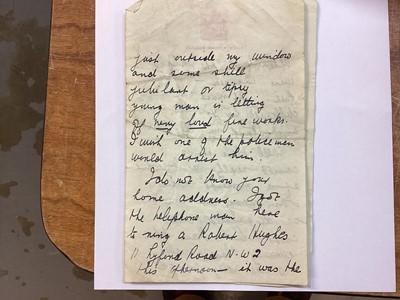 just outside my window
and some still
jubilant or tipsy
young man is letting
off very loud fire works.
I wish one of the policemen
would arrest him.
I do not know your
home address. I got
the telephone man here
to ring a Robert Hughes
11 Road N.W.2
this afternoon - it was the